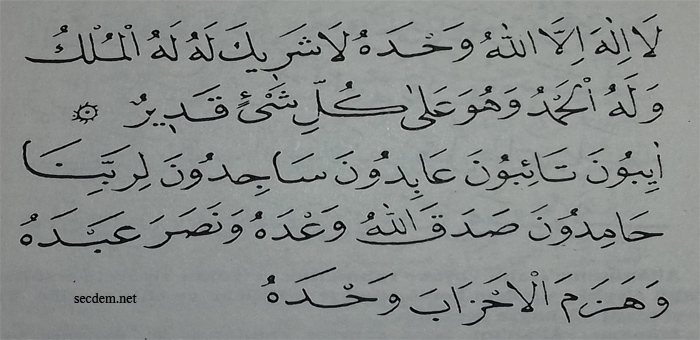 لَا اِلٰهَ اِلَّا اللّٰهُ وَحْدَهُ لَا شَرِيكَ لَهُ لَهُ الْمُلْكُ
وَلَهُ الْحَمْدُ وَهُوَ عَلٰى كُلِّ شَىْءٍ قَدِيرٌ ۞
اٰيِبُونَ تَائِبُونَ عَابِدُونَ سَاجِدُونَ لِرَبِّنَا
حَامِدُونَ صَدَقَ اللّٰهُ وَعْدَهُ وَنَصَرَ عَبْدَهُ
وَهَزَمَ الْاَحْزَابَ وَحْدَهُ
secdem.net